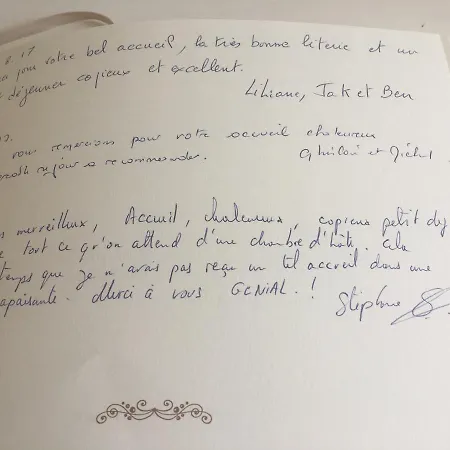 6.17
pour votre bel accueil, la très bonne literie et un
déjeuner copieux et excellent.
Liliane, Jak et Ben
vous remercions pour votre accueil chaleureux
et Michel
séjour a recommander.
merveilleux, Accueil, chaleureux, copieux petit dej
tout ce qu'on attend d'une chambre d'hôte. Cela
temps que je n'avais pas reçu un tel accueil dans une
apaisante. Merci à vous GENIAL. !
Stéphane